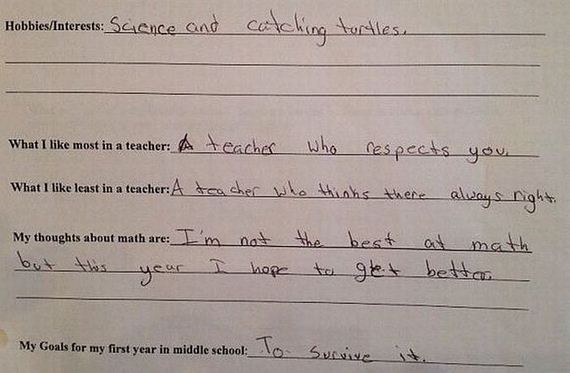 Hobbies/Interests: Science and catching turtles.
What I like most in a teacher: A teacher who respects you.
What I like least in a teacher: A teacher who thinks there always right.
My thoughts about math are: I'm not the best at math
but this year I hope to get better.
My Goals for my first year in middle school: To survive it.